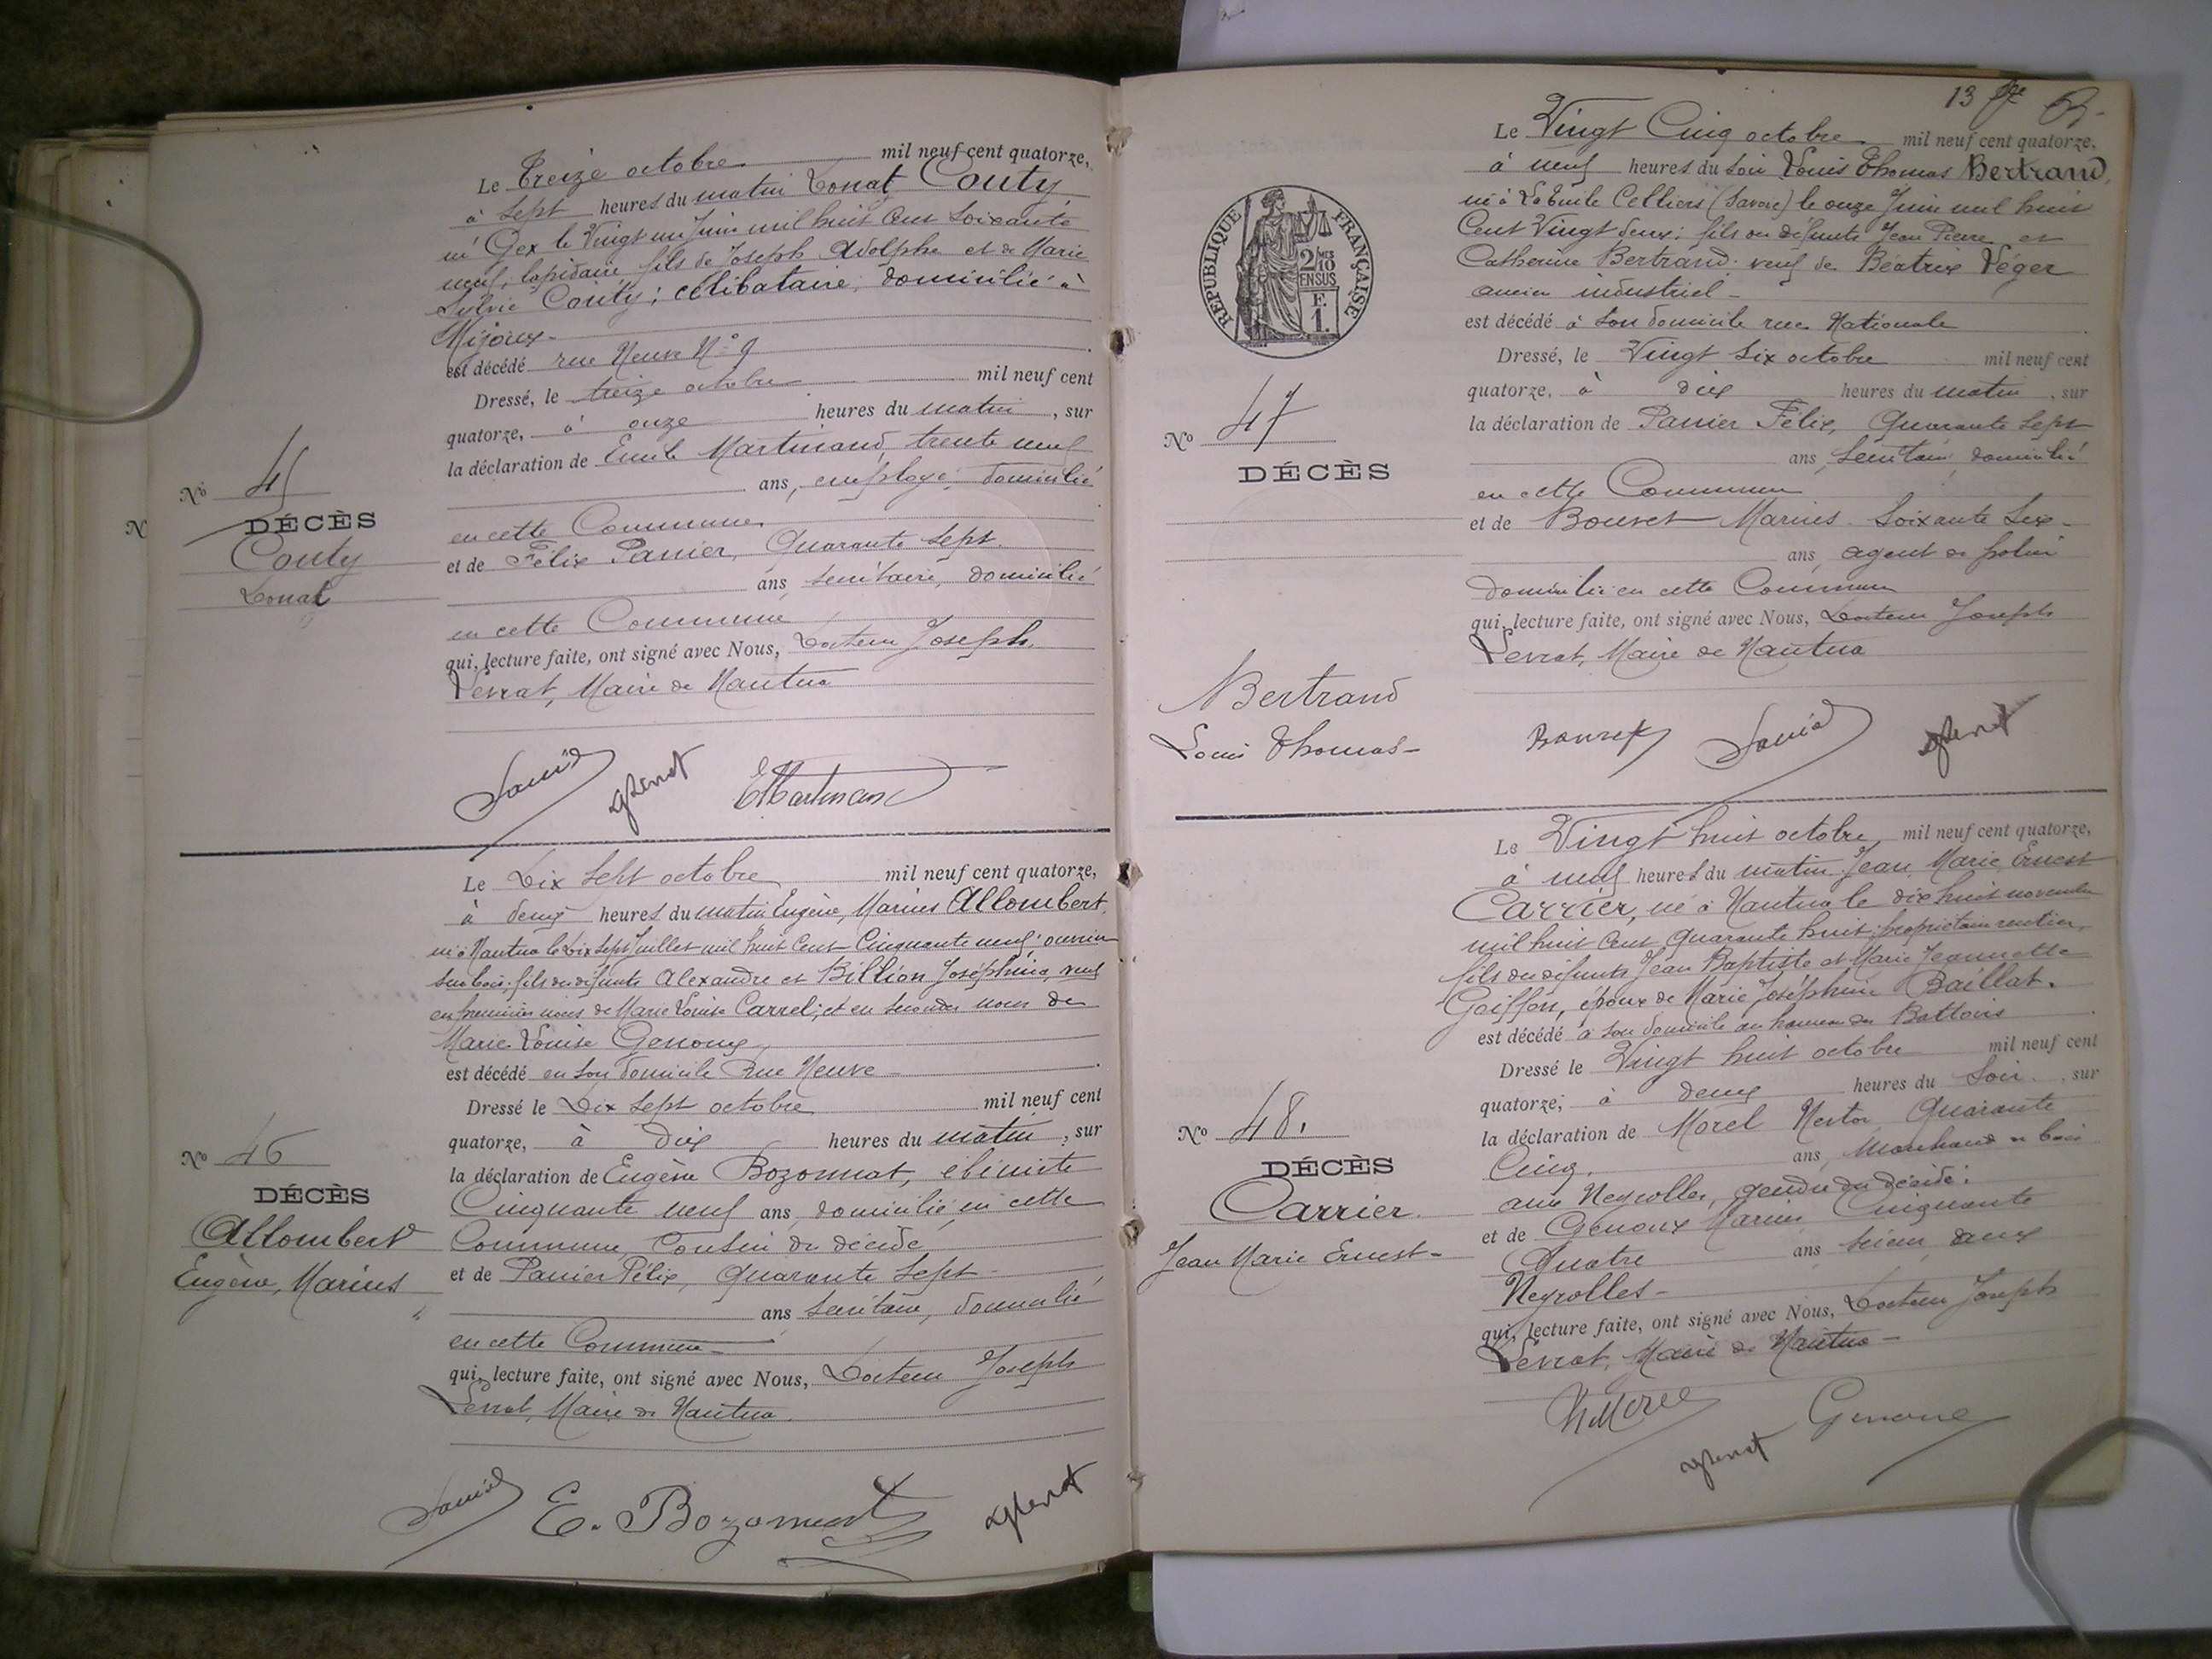 Le Treize octobre mil neuf cent quatorze,
à sept heures du matin Donat Couty
né Gex le Vingt un Juin mil huit Cent Soixante
neuf, lapidaire fils de Joseph Adolphe et de Marie
Sylvie Couty; célibataire, domicilié à
Mijoux
est décédé rue Neuve N° 9
Dressé, le treize octobre mil neuf cent
quatorze, à onze heures du matin, sur
la déclaration de Emile Martinand, trente neuf
ans, employé, domicilié
en cette Commune
et de Félix Panier, Quarante sept
ans secrétaire, domicilié
en cette Commune
qui, lecture faite, ont signé avec Nous, Docteur Joseph
Levrat, Maire de Nantua
N° 45
DÉCÈS
Couty
Donat
EMartinand
Le Dix sept octobre mil neuf cent quatorze,
à deux heures du matin Eugène, Marius Allombert,
né à Nantua le Dix Sept Juillet mil huit Cent Cinquante neuf; ouvrier
sur bois; fils de défunts Alexandre et Billion Joséphine, veuf
en premières noces de Marie Louise Carrel; et en secondes noces de
Marie Louise Genoux
est décédé en son domicile Rue Neuve
Dressé le Dix Sept octobre mil neuf cent
quatorze, à dix heures du matin, sur
la déclaration de Eugène Bozonnat, ébéniste
Cinquante neuf ans, domicilié en cette
Commune, Cousin du décédé
et de Panier Félix, quarante Sept
ans Secrétaire, domicilié
en cette Commune
qui, lecture faite, ont signé avec Nous, Docteur Joseph
Levrat, Maire de Nantua.
N° 46
DÉCÈS
Allombert
Eugène, Marius
E. Bozonnat
13
Le Vingt Cinq octobre mil neuf cent quatorze,
à neuf heures du soir Louis Thomas Bertrand,
né à Celliers (Savoie) le onze Juin mil huit
Cent Vingt deux; fils de défunts Jean Pierre et
Catherine Bertrand veuf de Béatrix Léger
ancien industriel
est décédé à son domicile rue Nationale
Dressé, le Vingt Six octobre mil neuf cent
quatorze, à dix heures du matin, sur
la déclaration de Panier Félix, Quarante Sept
ans, secrétaire domicilié
en cette Commune
et de Bouvet Marius Soixante Six
ans, agent de police
domicilié en cette Commune
qui, lecture faite, ont signé avec Nous, Docteur Joseph
Levrat, Maire de Nantua
RÉPUBLIQUE FRANÇAISE
2/10 MES
EN SUS
F.
1.
N° 47
DÉCÈS
Bertrand
Louis Thomas
Bouvet
Le Vingt huit octobre mil neuf cent quatorze,
à neuf heures du matin Jean Marie Ernest
Carrier, né à Nantua le dix huit novembre
mil huit Cent Quarante huit; propriétaire rentier,
fils de défunts Jean Baptiste et Marie Jeannette
Goiffon, époux de Marie Joséphine Baillat.
est décédé à son domicile au hameau des Battoirs
Dressé le Vingt huit octobre mil neuf cent
quatorze, à deux heures du Soir, sur
la déclaration de Morel Nestor Quarante
Cinq ans, Marchand de bois
aux Neyrolles, gendre du décédé;
et de Genoux Marius Cinquante
Quatre ans scieur aux
Neyrolles
qui, lecture faite, ont signé avec Nous, Docteur Joseph
Levrat, Maire de Nantua
N° 48.
DÉCÈS
Carrier
Jean Marie Ernest
NMorel
Genoux